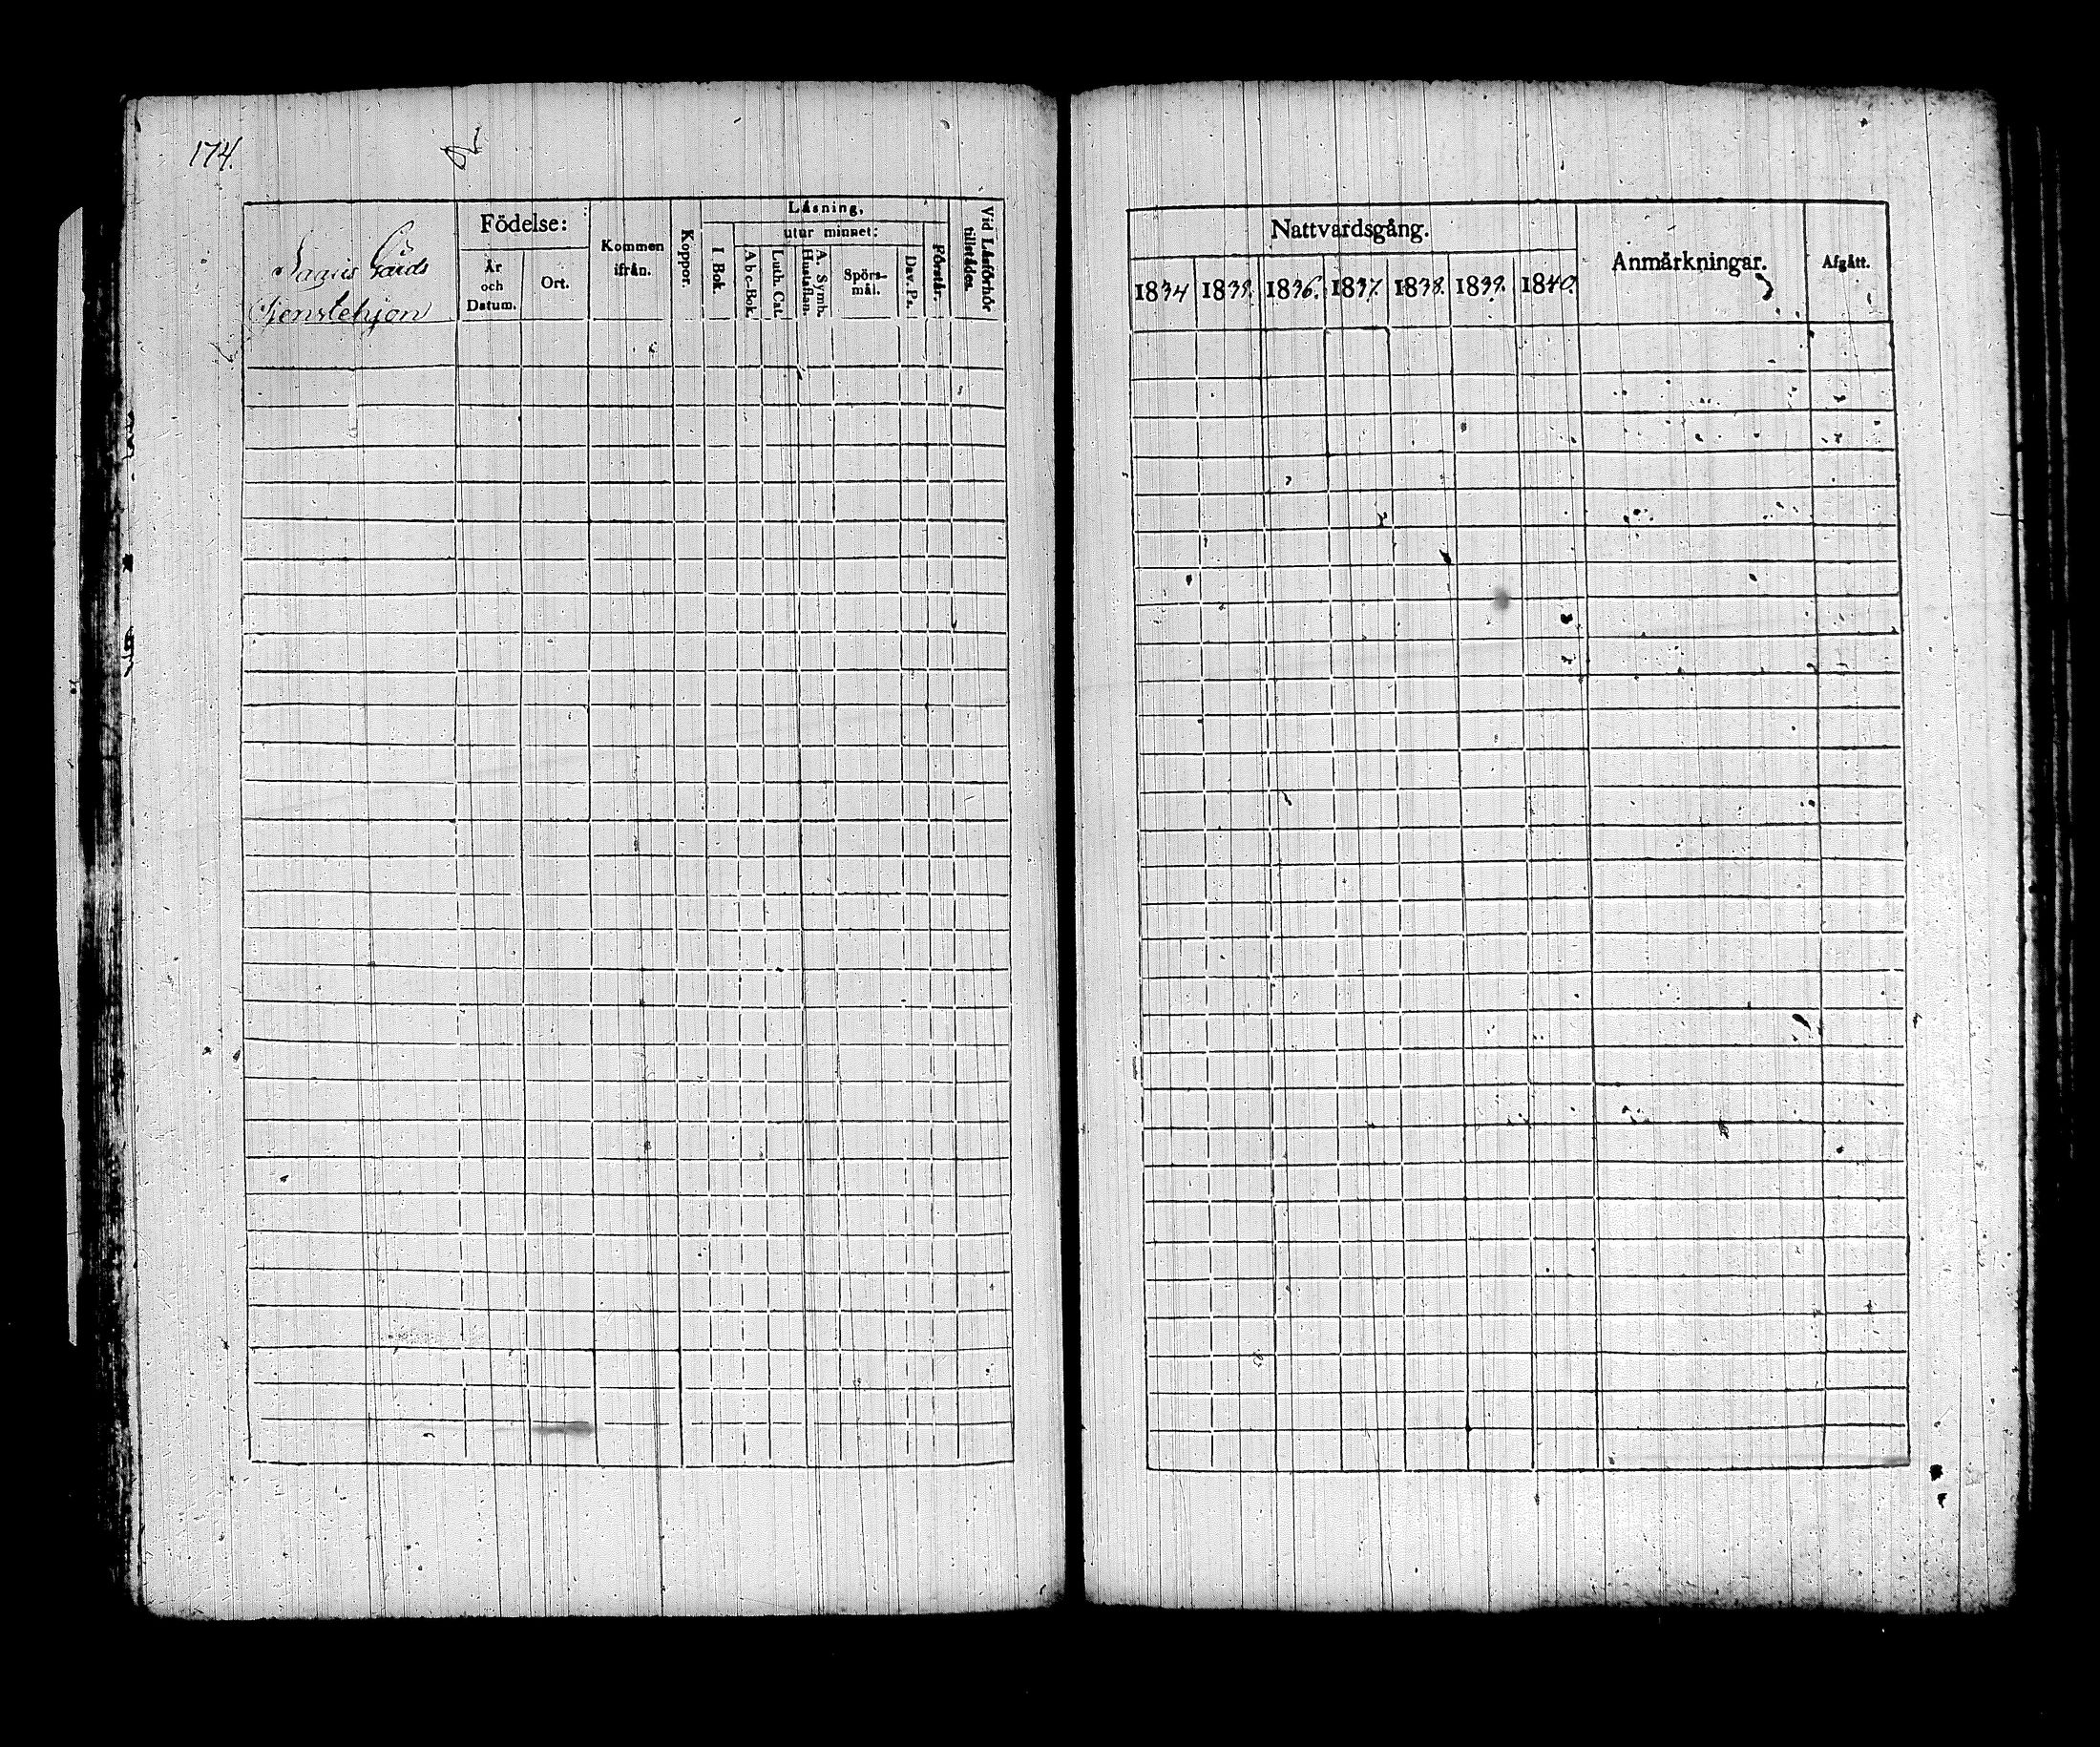 174.
Gårds
Tjenstehjon
Födelse:
År
och
Datum.
Ort.
Kommen
ifrån.
Koppor.
Läsning,
I Bok.
utur minnet:
Abc-Bok.
Luth. Cat.
A. Symb.
Hustaflan.
Spörs-
mål.
Dav. Ps.
Förstår.
Vid Läsförhör
tillstädes.
Nattvardsgång.
1834 1835. 1836. 1837. 1838. 1839. 1840.
Anmärkningar.
Afgått.